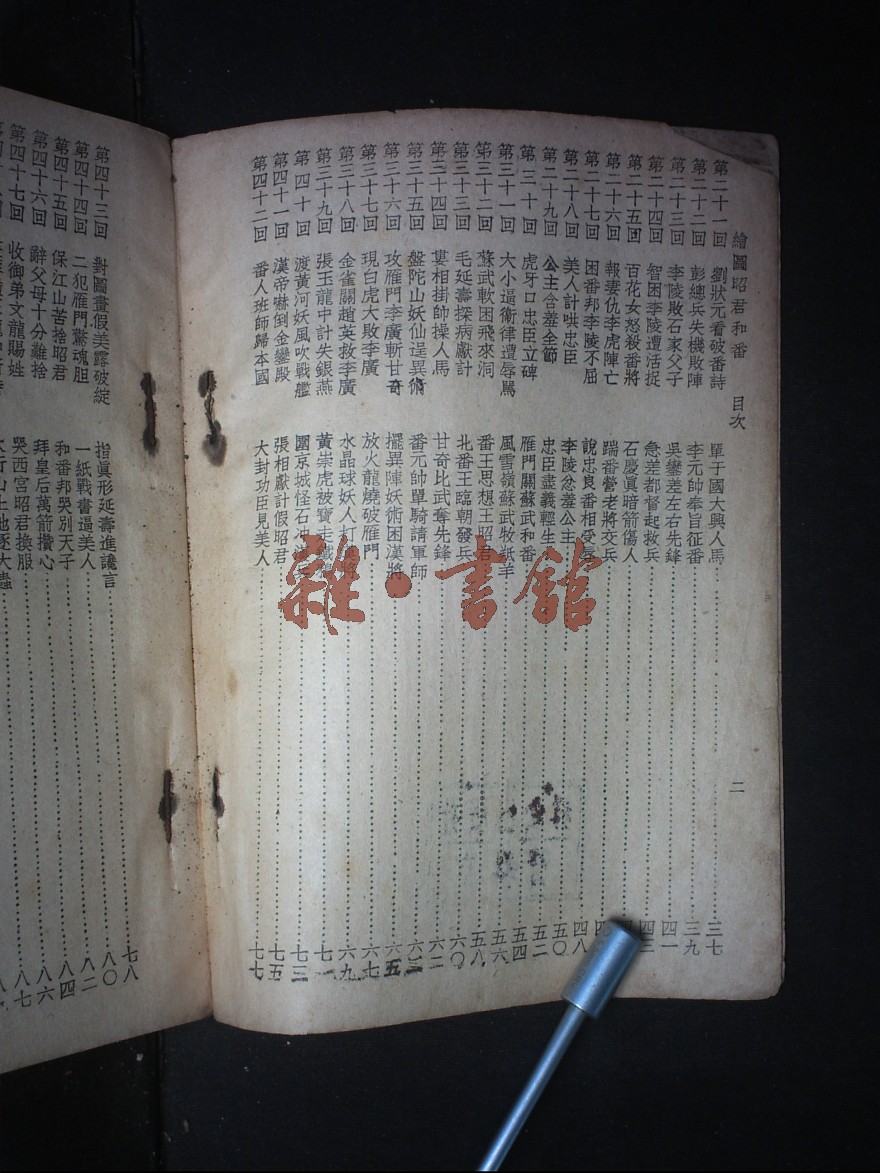 繪圖昭君和番 目次 二
第二十一回 劉狀元看破番詩 單于國大興人馬 三七
第二十二回 彭總兵失機敗陣 李元帥奉旨征番 三九
第二十三回 李陵敗石家父子 吳鑾差左右先鋒 四一
第二十四回 智困李陵遭活捉 急差都督起救兵 四三
第二十五回 百花女怒殺番將 石慶眞暗箭傷人
第二十六回 報妻仇李虎陣亡 踹番營老將交兵
第二十七回 困番邦李陵不屈 說忠良番相受辱
第二十八回 美人計哄忠臣 李陵忿羞公主 四八
第二十九回 公主含羞全節 忠臣盡義輕生 五〇
第三十回 虎牙口忠臣立碑 雁門關蘇武和番 五二
第三十一回 大小逼衞律遭辱罵 風雪嶺蘇武牧羝羊 五四
第三十二回 蘇武軟困飛來洞 番王思想王昭君 五八
第三十三回 毛延壽探病獻計 北番王臨朝發兵 六〇
第三十四回 婁相掛帥操人馬 甘奇比武奪先鋒 六二
第三十五回 盤陀山妖仙逞異術 番元帥單騎請軍師 六三
第三十六回 攻雁門李廣斬甘奇 擺異陣妖術困漢將 六五
第三十七回 現白虎大敗李廣 放火龍燒破雁門 六七
第三十八回 金雀關趙英救李廣 水晶球妖人打 六九
第三十九回 張玉龍中計失銀燕 黃崇虎被寶走 七一
第四十回 渡黃河妖風吹戰艦 困京城怪石 七三
第四十一回 漢帝嚇倒金鑾殿 張相獻計假昭君 七五
第四十二回 番人班師歸本國 大封功臣見美人 七七
第四十三回 對圖畫假美露破綻 指眞形延壽進讒言 七八
第四十四回 二犯雁門驚魂胆 一紙戰書逼美人 八〇
第四十五回 保江山苦捨昭君 和番邦哭別天子 八二
第四十六回 辭父母十分難捨 拜皇后萬箭攢心 八四
第四十七回 收御弟文龍賜姓 哭西宮昭君換服 八六
八七
雜·書館